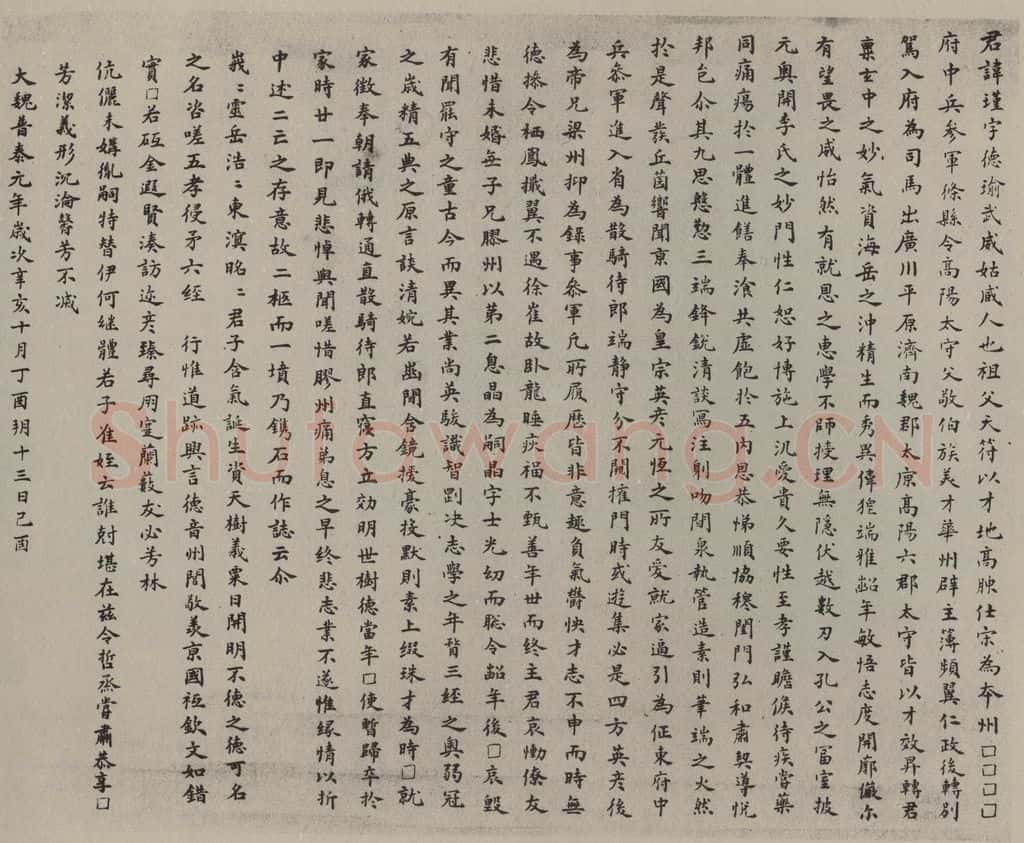 君諱瑾字德瑜武威姑臧人也祖父天符以才地高腴仕宗為本州□□□□
府中兵參軍條縣令高陽太守父敬伯族美才華州辟主簿頻翼仁政後轉別
駕入府為司馬出廣川平原濟南魏郡太原高陽六郡太守皆以才效昇轉君
稟玄中之妙氣資海岳之沖精生而秀異偉狴端雅齠年敏悟志度開廓儼尒
有望畏之威怡然有就思之惠學不師授理無隱伏越數刃入孔公之富室披
元奧開李氏之妙門性仁恕好博施上汎愛貴久要性至孝謹瞻候侍疾嘗藥
同痛瘍於一體進饍奉飡共虛飽於五內恩恭悌順協穆閨門弘和肅契導悅
邦邑尒其九思慇懃三端鋒銳清談寫注則吻閒泉執管造素則筆端之火然
於是聲發丘園響聞京國為皇宗英彥元恆之所友愛就家逼引為征東府中
兵參軍進入省為散騎侍郎端靜守分不閞擁門時或遊集必是四方英彥後
為帝兄梁州抑為錄事參軍凡所履歷皆非意趣負氣欝怏才志不申而時無
德操令栖鳳擑翼不遇徐崔故臥龍睡疾福不甄善年世而終主君哀慟僚友
悲惜未婚無子兄膠州以第二息晶為嗣晶字士光幼而聡令齠年後□哀毀
有閒罷守之童古今而異其業尚英駿識智剖決志學之年晉三經之奧弱冠
之歲精五典之原言談清婉若幽閒含鏡援豪投默則素上綴珠才為時□就
家徵奉朝請俄轉通直散騎侍郎直寢方立効明世樹德當年□使暫歸卒於
家時廿一即見悲悼興聞嗟惜膠州痛弟息之早終悲志業不遂惟緣情以折
中述二云之存意故二柩而一墳乃鐫石而作誌云尒
峩〻靈岳浩〻東溟昭〻君子含氣誕生資天樹義稟日開明不德之德可名
之名咨嗟五孝侵矛六經　行惟道跡興言德音州閭敬羙京國袛欽文如錯
寶□若砥金遐賢湊訪迩彥臻尋罔室蘭薮友必芳林
伉儷未媾胤嗣特替伊何继體若子準姪云誰尅堪在茲令哲烝嘗肅恭享□
芳潔義形沉淪馨芳不减
大魏普泰元年歲次辛亥十月丁酉玥十三日己酉
Shufawang.CN